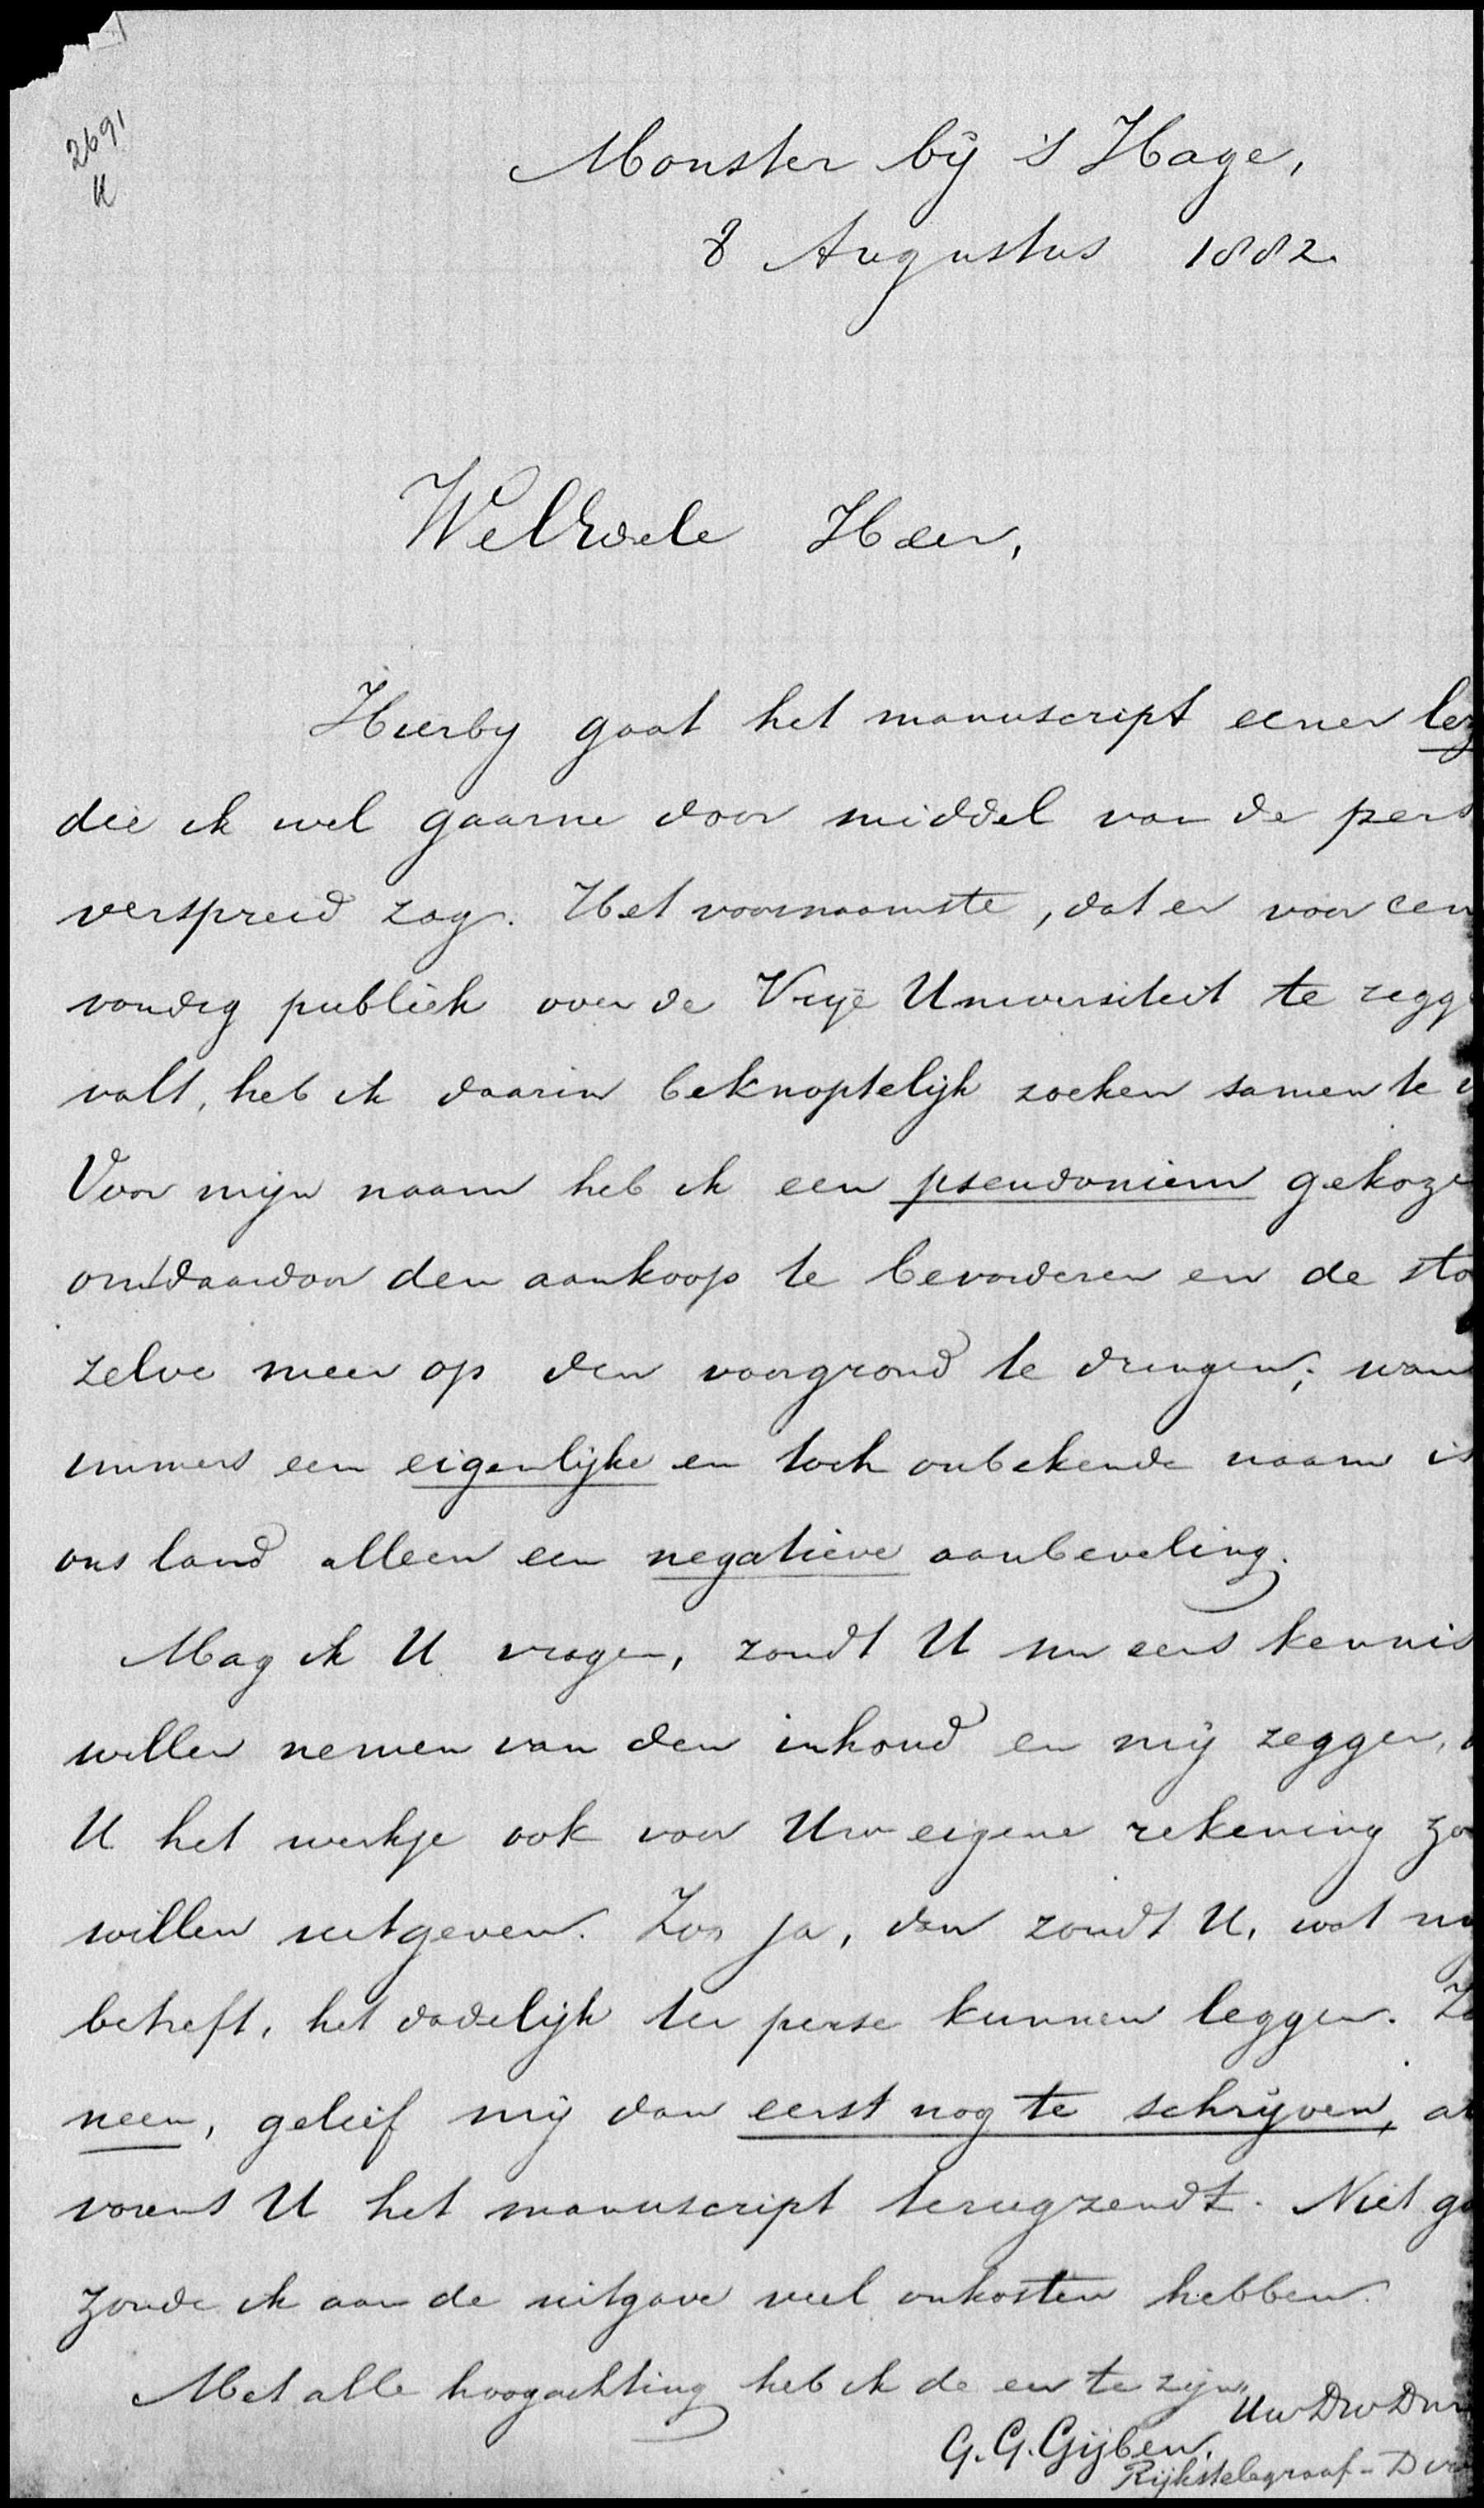 2691
K
Monster bij 's Hage,
8 Augustus 1882.
WelEdele Heer,
Hierby gaat het manuscript eener lez
die ik wel gaarne door middel van de pers
verspreid zag. Het voornaamste, dat er voor een
voudig publiek over de Vrije Universiteit te zegge
valt, heb ik daarin beknoptelijk zoeken samen te
Voor mijn naam heb ik een pseudoniem gekoze
om daardoor den aankoop te bevorderen en de sto
zelve meer op den voorgrond te dringen; wan
immers een eigenlijke en toch onbekende naam is
ons land alleen een negatieve aanbeveling.
Mag ik U vragen, zoudt U nu eens kennis
willen nemen van den inhoud en mij zeggen,
U het werkje ook voor Uw eigene rekening zo
willen uitgeven. Zoo ja, dan zoudt U, wat my
betreft, het dadelijk ter perse kunnen leggen. Zo
neen, gelief mij dan eerst nog te schrijven, al
vorens U het manuscript terugzendt. Niet ga
zoude ik aan de uitgave veel onkosten hebben.
Met alle hoogachting heb ik de eer te zijn,
Uw Dw Dnr
G. G. Gijben,
Rijkstelegraaf-Dir